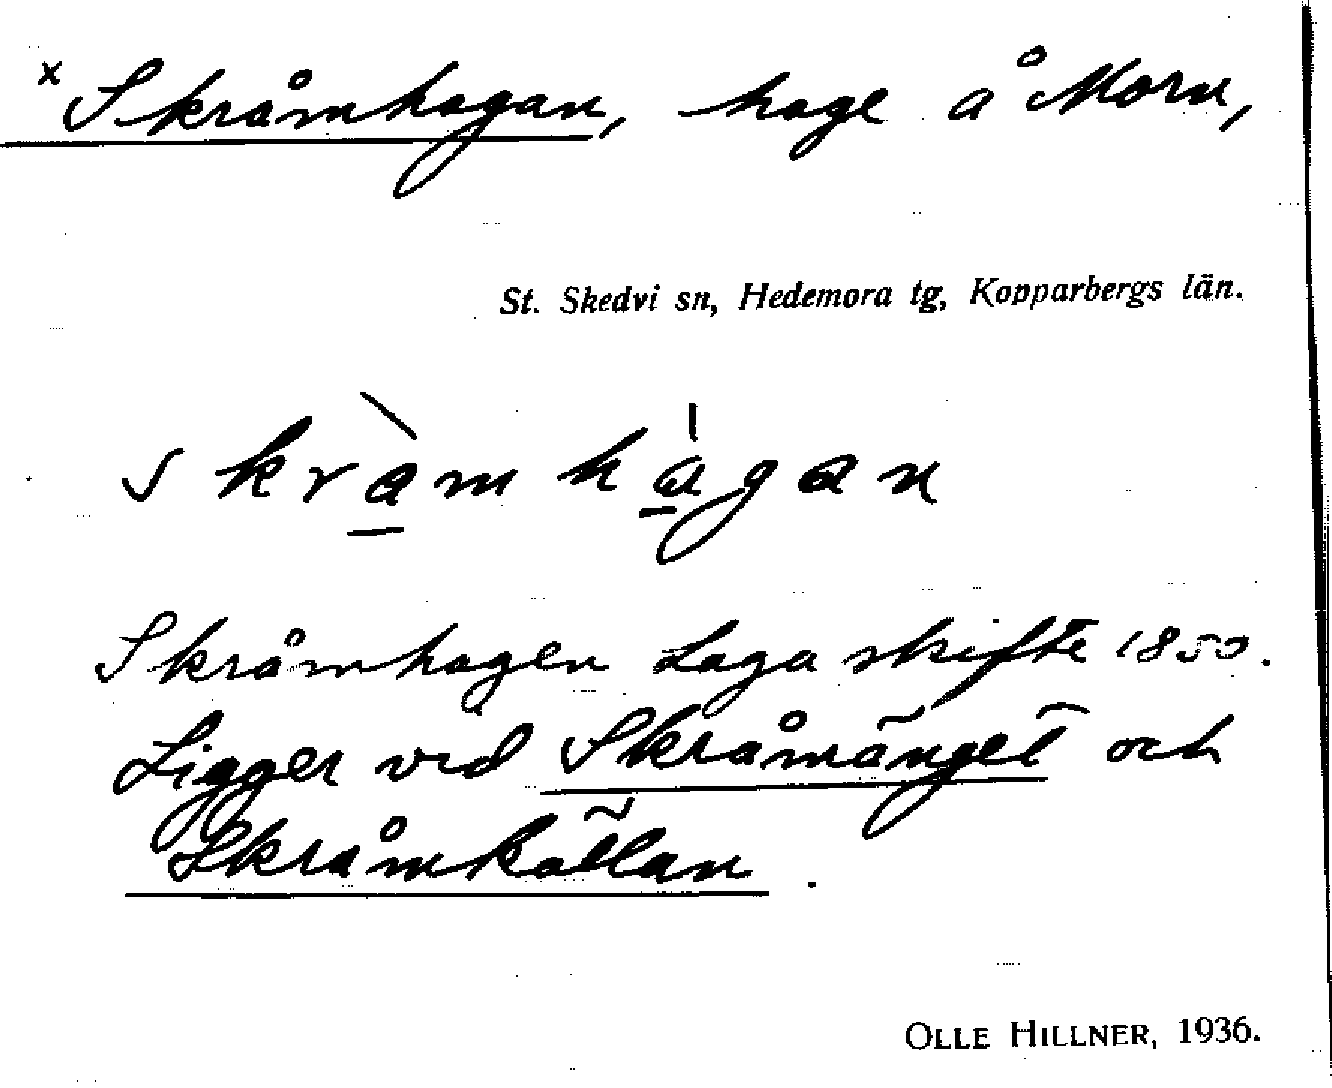 x Skråmhagan, hage å Morn,
St. Skedvi sn, Hedemora tg, Kopparbergs län.
skrà̲mha̲̍gan
Skråmhagen Laga skifte 1850.
Ligger vid Skråmänget och
Skråmkällan.
OLLE HILLNER, 1936.